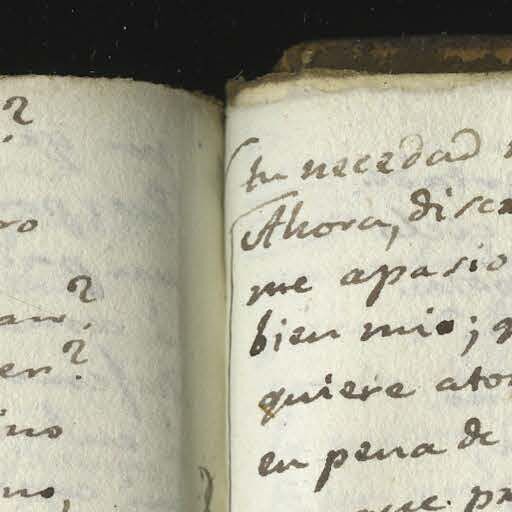 ?
ro
an?
er?
ino
no,
tu necedad
Ahora, discu
me apasio
bien mio;
quiere ato
en pena de
que pa